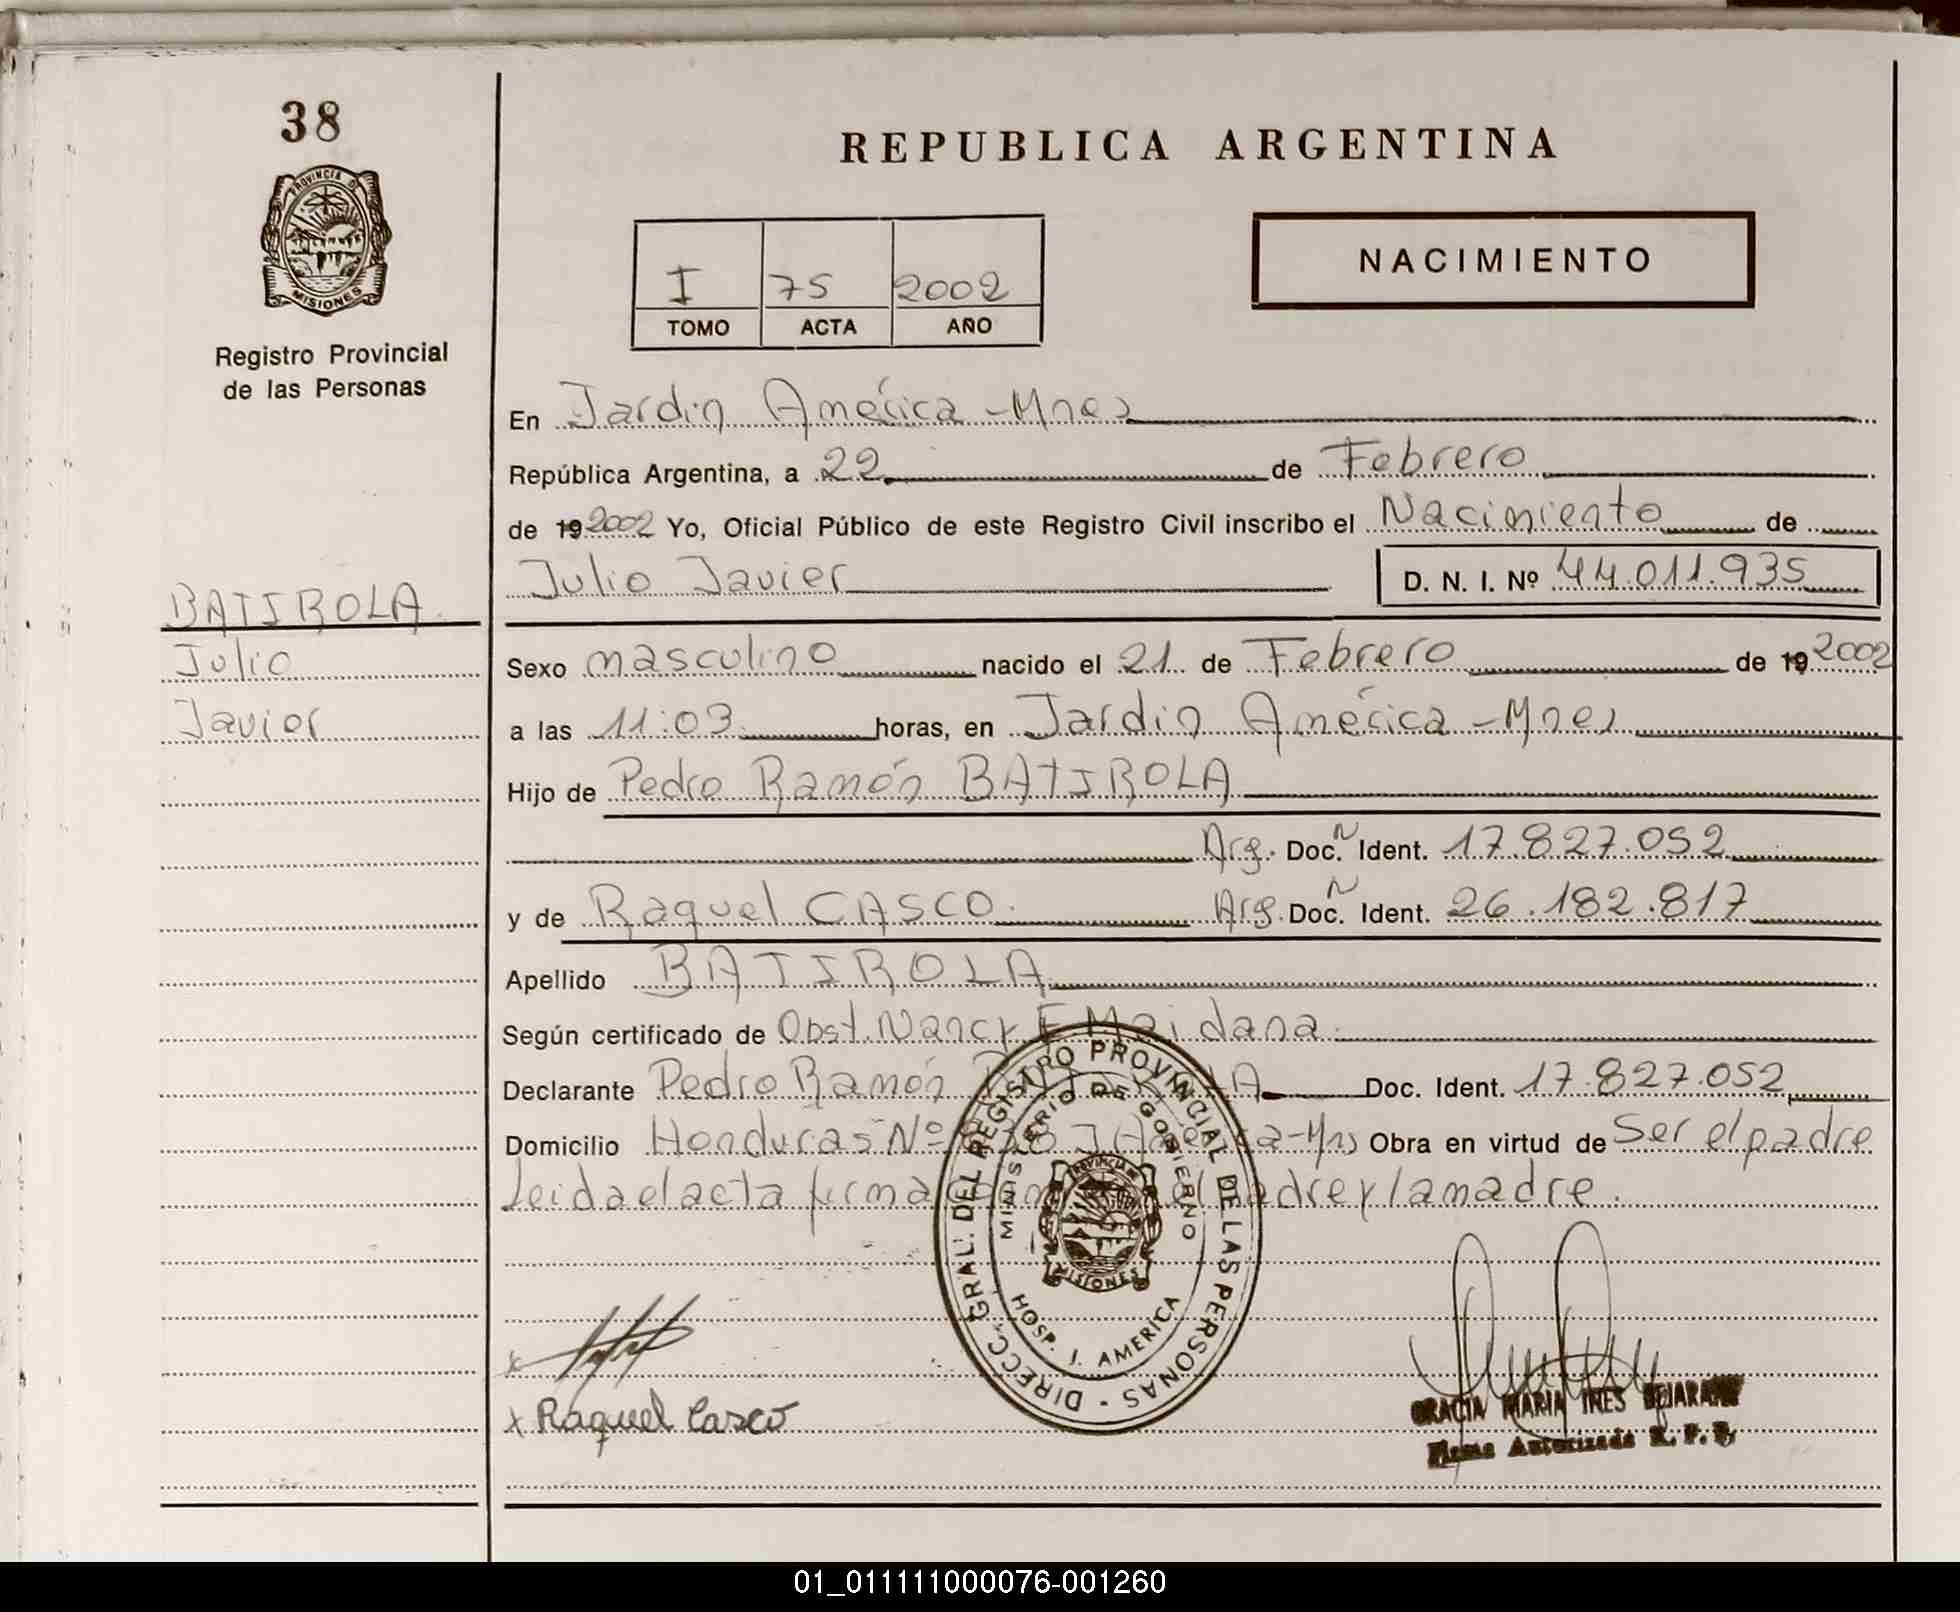 38
REPUBLICA ARGENTINA
PROVINCIA DE
MISIONES
NACIMIENTO
I 75 2002
TOMO ACTA AÑO
Registro Provincial
de las Personas
En Jardin América - Mnes
República Argentina, a 22 de Febrero
de 19 2002 Yo, Oficial Público de este Registro Civil inscribo el Nacimiento de
Julio Javier D. N. I. Nº 44.011.935
BATIROLA
Julio
Javier
Sexo masculino nacido el 21 de Febrero de 19 2002
a las 11:03 horas, en Jardin América - Mnes
Hijo de Pedro Ramón BATIROLA
Arg. Doc. N Ident. 17.827.052
y de Raquel CASCO. Arg. Doc. N Ident. 26.182.817
Apellido BATIROLA
Según certificado de Obst. Nancy E. Maidana.
Declarante Pedro Ramón Doc. Ident. 17.827.052
Domicilio Honduras Nº Obra en virtud de Ser el padre
Leida el acta firma padre y la madre.
DIRECC. GRAL. DEL REGISTRO PROVINCIAL DE LAS PERSONAS
MINISTERIO DE GOBIERNO
PROVINCIA DE
MISIONES
HOSP. J. AMERICA
x
x Raquel Casco
GRACIA MARIA INES BEJARANO
Firma Autorizada R. P. P.
01_011111000076-001260